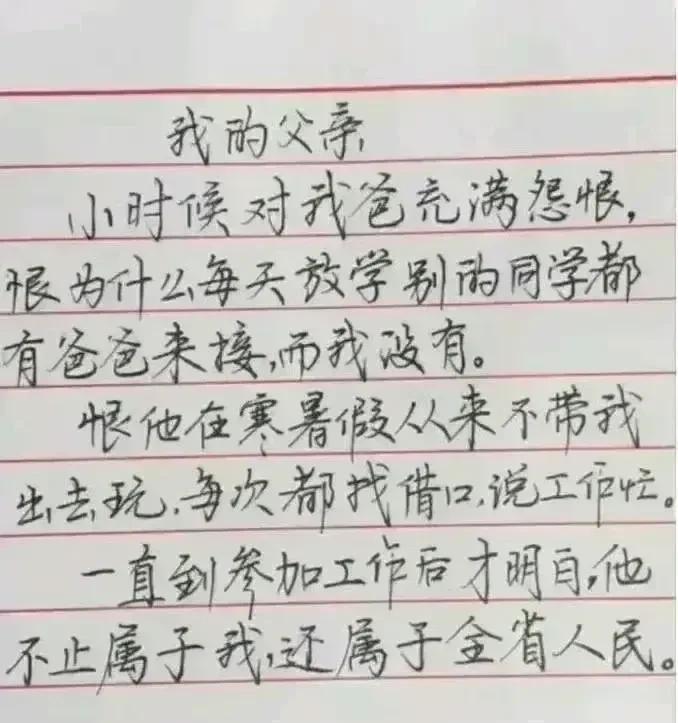 我的父亲
小时候对我爸充满怨恨,
恨为什么每天放学别的同学都
有爸爸来接,而我没有。
恨他在寒暑假从来不带我
出去玩,每次都找借口,说工作忙。
一直到参加工作后才明白,他
不止属于我,还属于全省人民。